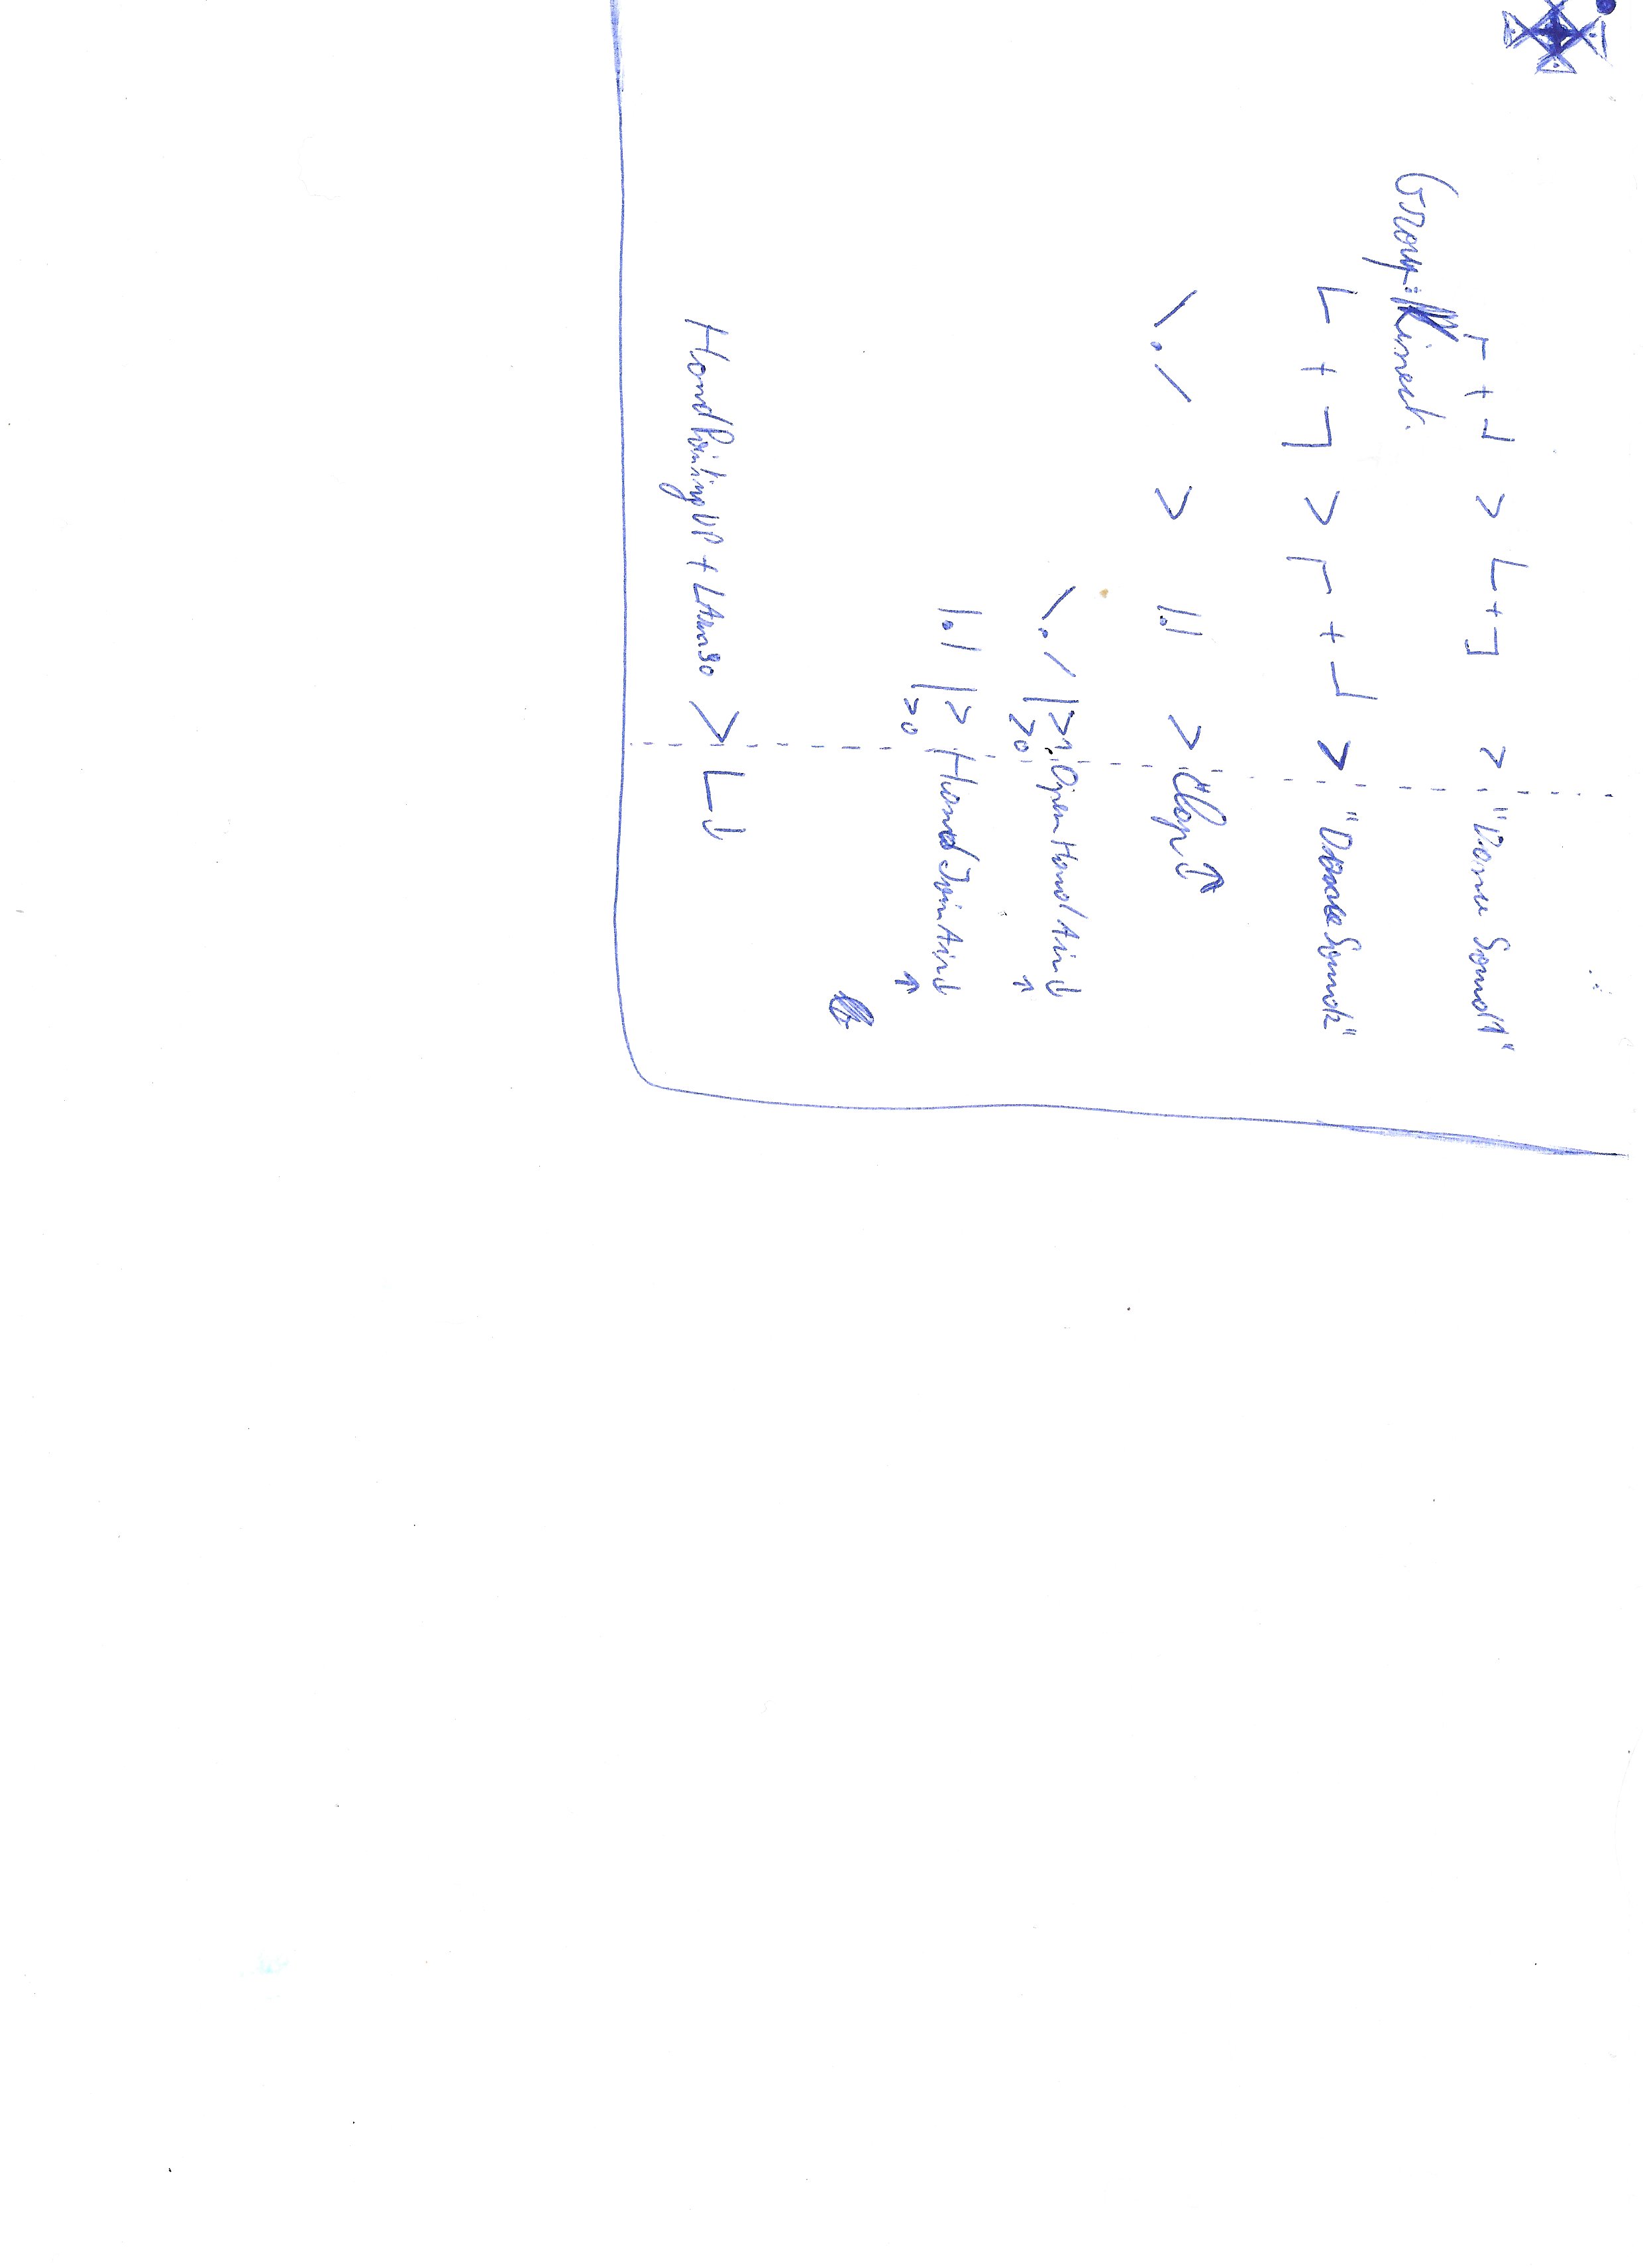 ┌ + ┘ > └ + ┐ > "Dance Sound1"
Group: Kinect.
└ + ┐ > ┌ + ┘ > "DanceSound2"
\./ > |.| > "Clap ↕
\./ |>1 OpenHandAir↓
>0 ↑
|.| |> HandJoinAir↓
>0 ↑
HandPointingUP + LArm90 > L↓